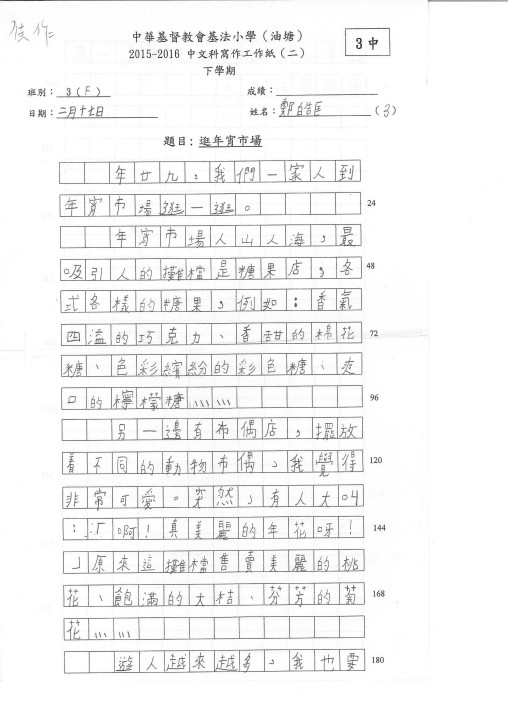 佳作
中華基督教會基法小學（油塘）
2015-2016 中文科寫作工作紙（二）
下學期
3中
班別： 3(F) 成績：
日期： 二月十七日 姓名： 鄭皓匡 (3)
題目：逛年宵市場
年廿九，我們一家人到
年宵市場逛一逛。 24
年宵市場人山人海，最
吸引人的攤檔是糖果店，各 48
式各樣的糖果，例如：香氣
四溢的巧克力、香甜的棉花 72
糖、色彩繽紛的彩色糖、爽
口的檸檬糖…… 96
另一邊有布偶店，擺放
着不同的動物布偶，我覺得 120
非常可愛。突然，有人大叫
：「啊！真美麗的年花呀！ 144
」原來這攤檔售賣美麗的桃
花、飽滿的大桔、芬芳的菊 168
花……
遊人越來越多，我也要 180